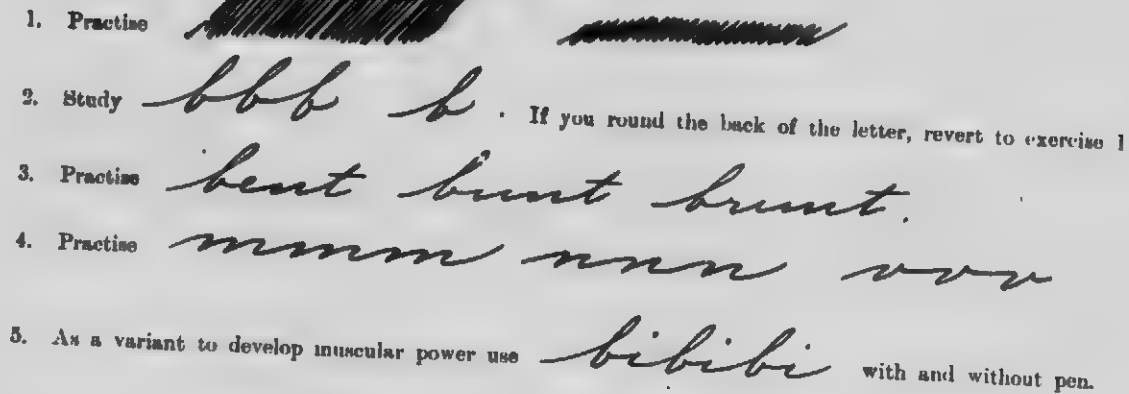 1. Practise
2. Study bbb b . If you round the back of the letter, revert to exercise 1
3. Practise bent bunt brunt.
4. Practise mmm nnn vvv
5. As a variant to develop muscular power use bibibi with and without pen.